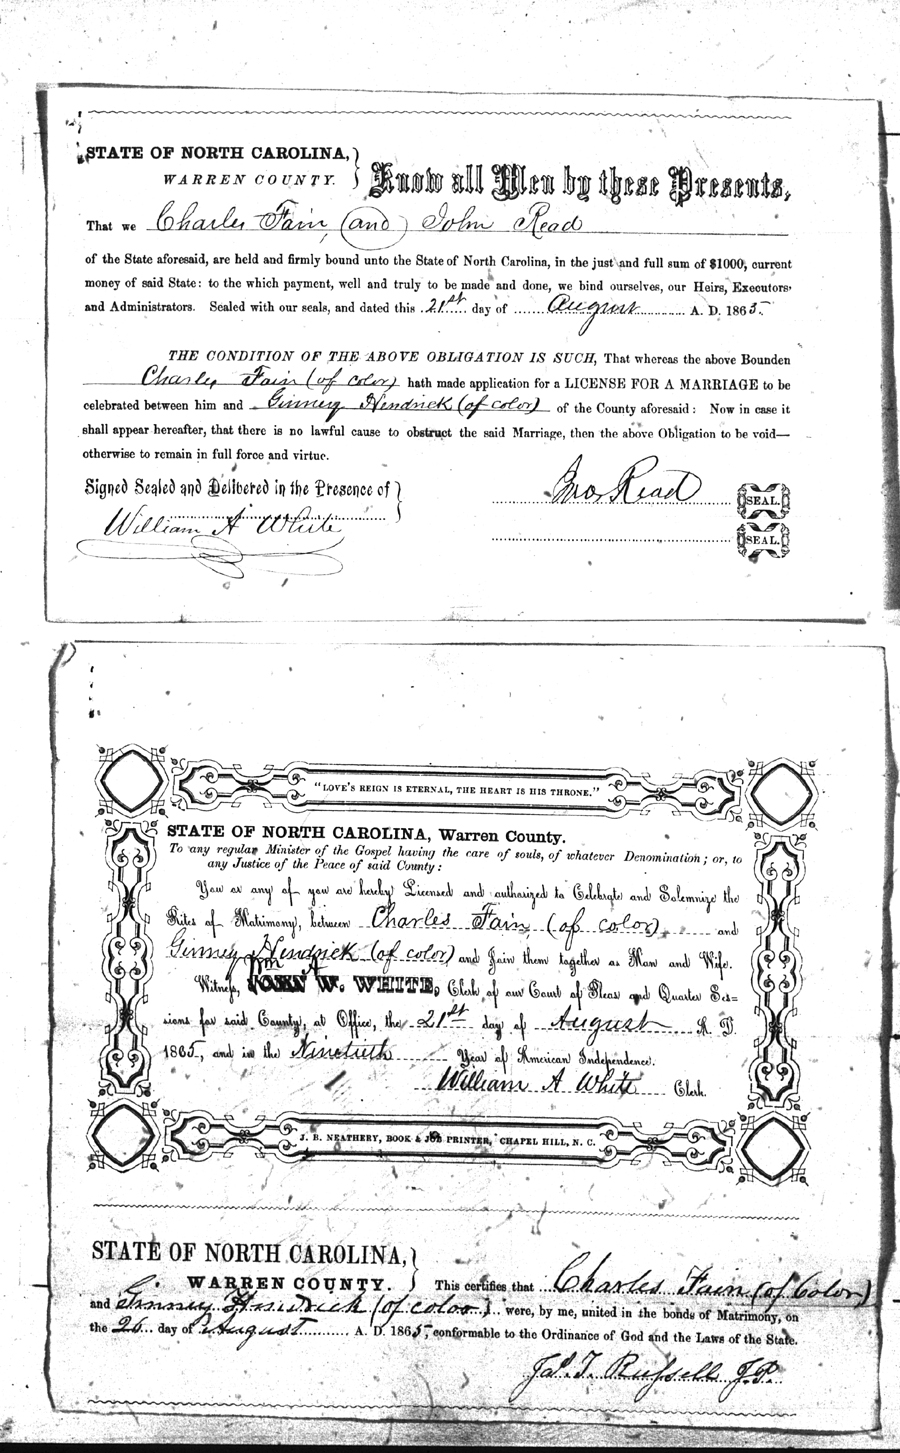 STATE OF NORTH CAROLINA,
WARREN COUNTY.
Know all Men by these Presents,
That we Charles Fain, (and) John Read
of the State aforesaid, are held and firmly bound unto the State of North Carolina, in the just and full sum of $1000, current
money of said State: to the which payment, well and truly to be made and done, we bind ourselves, our Heirs, Executors
and Administrators. Sealed with our seals, and dated this 21st day of August A. D. 1865.
THE CONDITION OF THE ABOVE OBLIGATION IS SUCH, That whereas the above Bounden
Charles Fain (of color) hath made application for a LICENSE FOR A MARRIAGE to be
celebrated between him and Ginney Hendrick (of color) of the County aforesaid: Now in case it
shall appear hereafter, that there is no lawful cause to obstruct the said Marriage, then the above Obligation to be void—
otherwise to remain in full force and virtue.
Signed Sealed and Delibered in the Presence of
Jno Read SEAL.
William A White
SEAL.
"LOVE'S REIGN IS ETERNAL, THE HEART IS HIS THRONE."
STATE OF NORTH CAROLINA, Warren County.
To any regular Minister of the Gospel having the care of souls, of whatever Denomination; or, to
any Justice of the Peace of said County:
You or any of you are hereby Licensed and authorized to Celebrate and Solemnize the
Rites of Matrimony, between Charles Fain, (of color) and
Ginney Hendrick (of color) and Join them together as Man and Wife.
Wm A
Witness, JOHN W. WHITE, Clerk of our Court of Pleas and Quarter Ses=
sions for said County, at Office, the 21st day of August A. D.
1865, and in the Ninetieth Year of American Independence.
William A White Clerk.
J. B. NEATHERY, BOOK & JOB PRINTER, CHAPEL HILL, N. C.
STATE OF NORTH CAROLINA,
WARREN COUNTY.
This certifies that Charles Fain (of Color)
and Ginney Hendrick (of color) were, by me, united in the bonds of Matrimony, on
the 26 day of August A. D. 1865, conformable to the Ordinance of God and the Laws of the State.
Jas. T. Russell J.P.